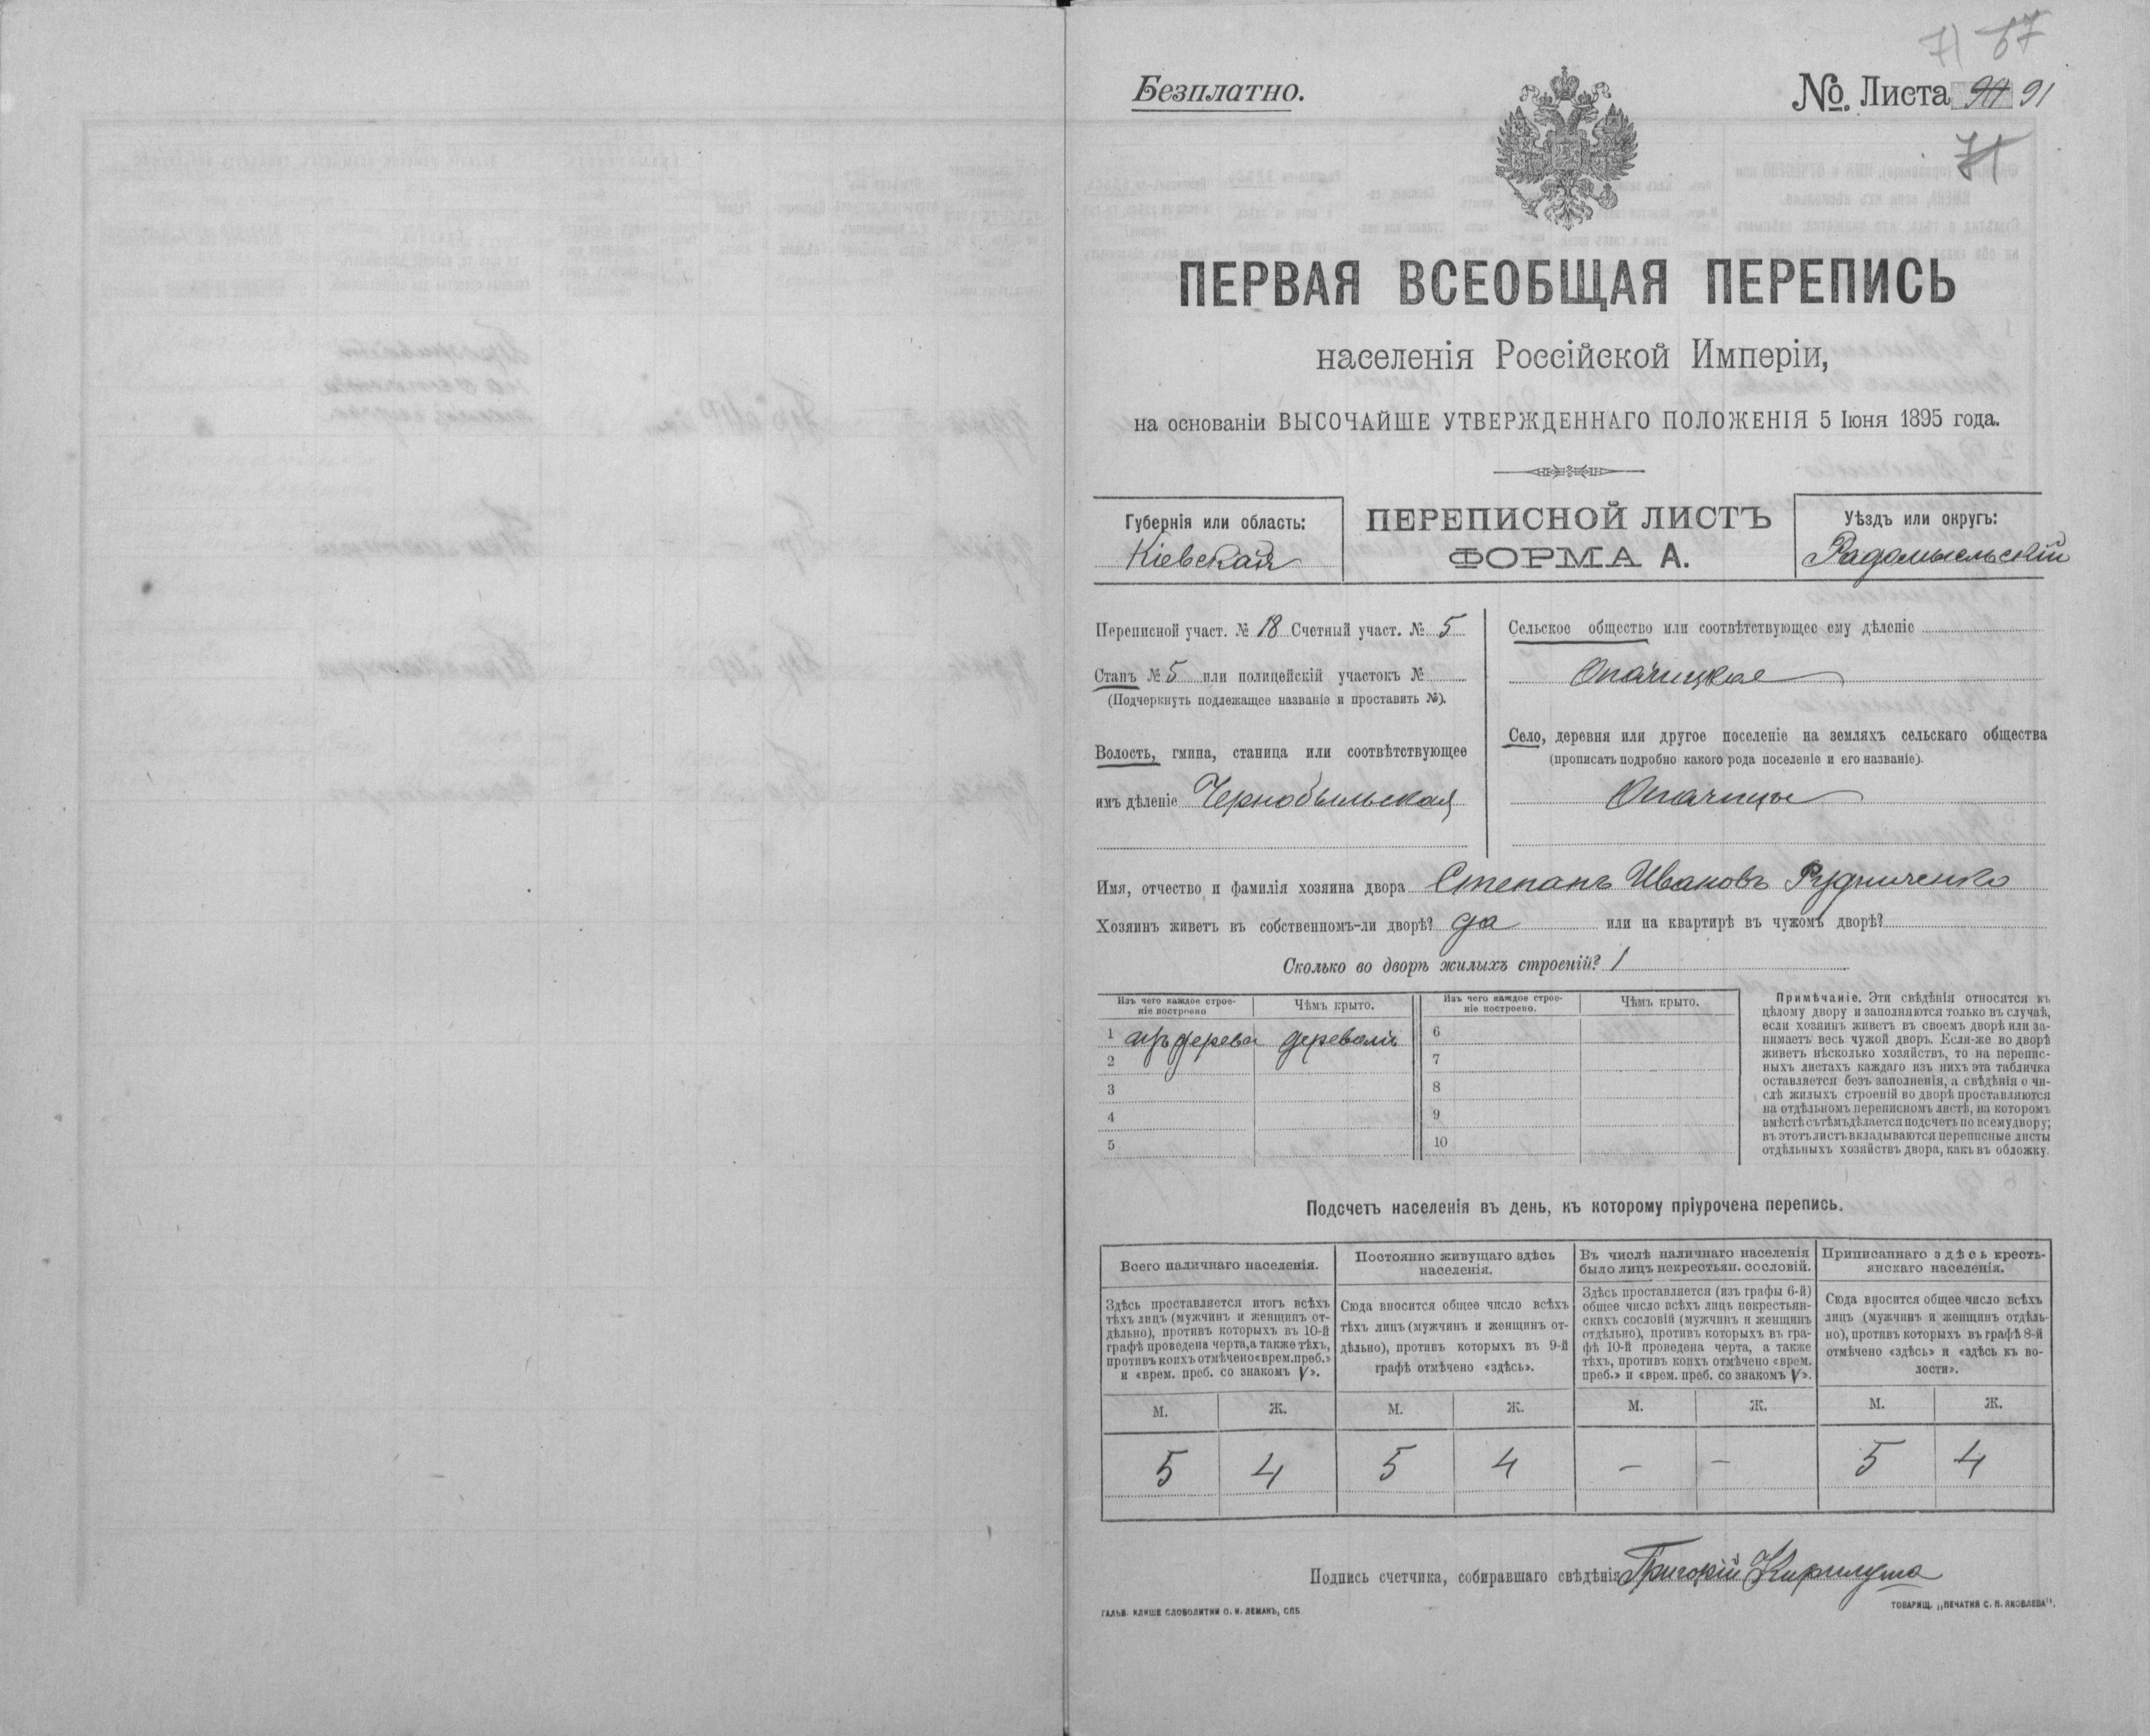 71 67
Безплатно.
№. Листа 91
71
ПЕРВАЯ ВСЕОБЩАЯ ПЕРЕПИСЬ
населенія Россійской Имперіи,
на основаніи ВЫСОЧАЙШЕ УТВЕРЖДЕННАГО ПОЛОЖЕНІЯ 5 Іюня 1895 года.
Губернія или область:
Кіевская
ПЕРЕПИСНОЙ ЛИСТЪ
ФОРМА А.
Уѣздъ или округъ:
Радомысльскій
Переписной участ. № 18 Счетный участ. № 5
Станъ № 5 или полицейскій участокъ №
(Подчеркнуть подлежащее названіе и проставить №).
Волость, гмина, станица или соотвѣтствующее
имъ дѣленіе Чернобыльская
Сельское общество или соотвѣтствующее ему дѣленіе
Опачицкое
Село, деревня или другое поселеніе на земляхъ сельскаго общества
(прописать подробно какого рода поселеніе и его названіе).
Опачицы
Имя, отчество и фамилія хозяина двора Степанъ Ивановъ Рудниченко
Хозяинъ живетъ въ собственномъ-ли дворѣ? да или на квартирѣ въ чужомъ дворѣ?
Сколько во дворѣ жилыхъ строеній? 1
Изъ чего каждое строе-
ніе построено
Чѣмъ крыто.
Изъ чего каждое строе-
ніе построено.
Чѣмъ крыто.
1 изъ дерева деревомъ 6
2 7
3 8
4 9
5 10
Примѣчаніе. Эти свѣдѣнія относятся къ
цѣлому двору и заполняются только въ случаѣ,
если хозяинъ живетъ въ своемъ дворѣ или за-
нимаетъ весь чужой дворъ. Если-же во дворѣ
живетъ нѣсколько хозяйствъ, то на перепис-
ныхъ листахъ каждаго изъ нихъ эта табличка
оставляется безъ заполненія, а свѣдѣнія о чи-
слѣ жилыхъ строеній во дворѣ проставляются
на отдѣльномъ переписномъ листѣ, на которомъ
вмѣстѣ съ тѣмъ дѣлается подсчетъ по всему двору;
въ этотъ листъ вкладываются переписные листы
отдѣльныхъ хозяйствъ двора, какъ въ обложку.
Подсчетъ населенія въ день, къ которому пріурочена перепись.
Всего наличнаго населенія.
Постоянно живущаго здѣсь
населенія.
Въ числѣ наличнаго населенія
было лицъ некрестьян. сословій.
Приписаннаго здѣсь кресть-
янскаго населенія.
Здѣсь проставляется итогъ всѣхъ
тѣхъ лицъ (мужчинъ и женщинъ от-
дѣльно), противъ которыхъ въ 10-й
графѣ проведена черта, а также тѣхъ,
противъ коихъ отмѣчено «врем. преб.»
и «врем. преб. со знакомъ V».
Сюда вносится общее число всѣхъ
тѣхъ лицъ (мужчинъ и женщинъ от-
дѣльно), противъ которыхъ въ 9-й
графѣ отмѣчено «здѣсь».
Здѣсь проставляется (изъ графы 6-й)
общее число всѣхъ лицъ некрестьян-
скихъ сословій (мужчинъ и женщинъ
отдѣльно), противъ которыхъ въ гра-
фѣ 10-й проведена черта, а также
тѣхъ, противъ коихъ отмѣчено «врем.
преб.» и «врем. преб. со знакомъ V».
Сюда вносится общее число всѣхъ
лицъ (мужчинъ и женщинъ отдѣль-
но), противъ которыхъ въ графѣ 8-й
отмѣчено «здѣсь» и «здѣсь къ во-
лости».
М. Ж. М. Ж. М. Ж. М. Ж.
5 4 5 4 — — 5 4
Подпись счетчика, собиравшаго свѣдѣнія Григорій
ГАЛЬВ. КЛИШЕ СЛОВОЛИТНИ О. И. ЛЕМАНЪ, СПБ.
ТОВАРИЩ. „ПЕЧАТНЯ С. П. ЯКОВЛЕВА".